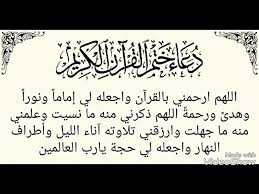 دعاء ختم القرآن الكريم
اللهم ارحمني بالقرآن واجعله لي إماماً ونوراً
وهدىً ورحمةً اللهم ذكرني منه ما نسيت وعلمني
منه ما جهلت وارزقني تلاوته آناء الليل وأطراف
النهار واجعله لي حجة يارب العالمين
Made with
VideoShow